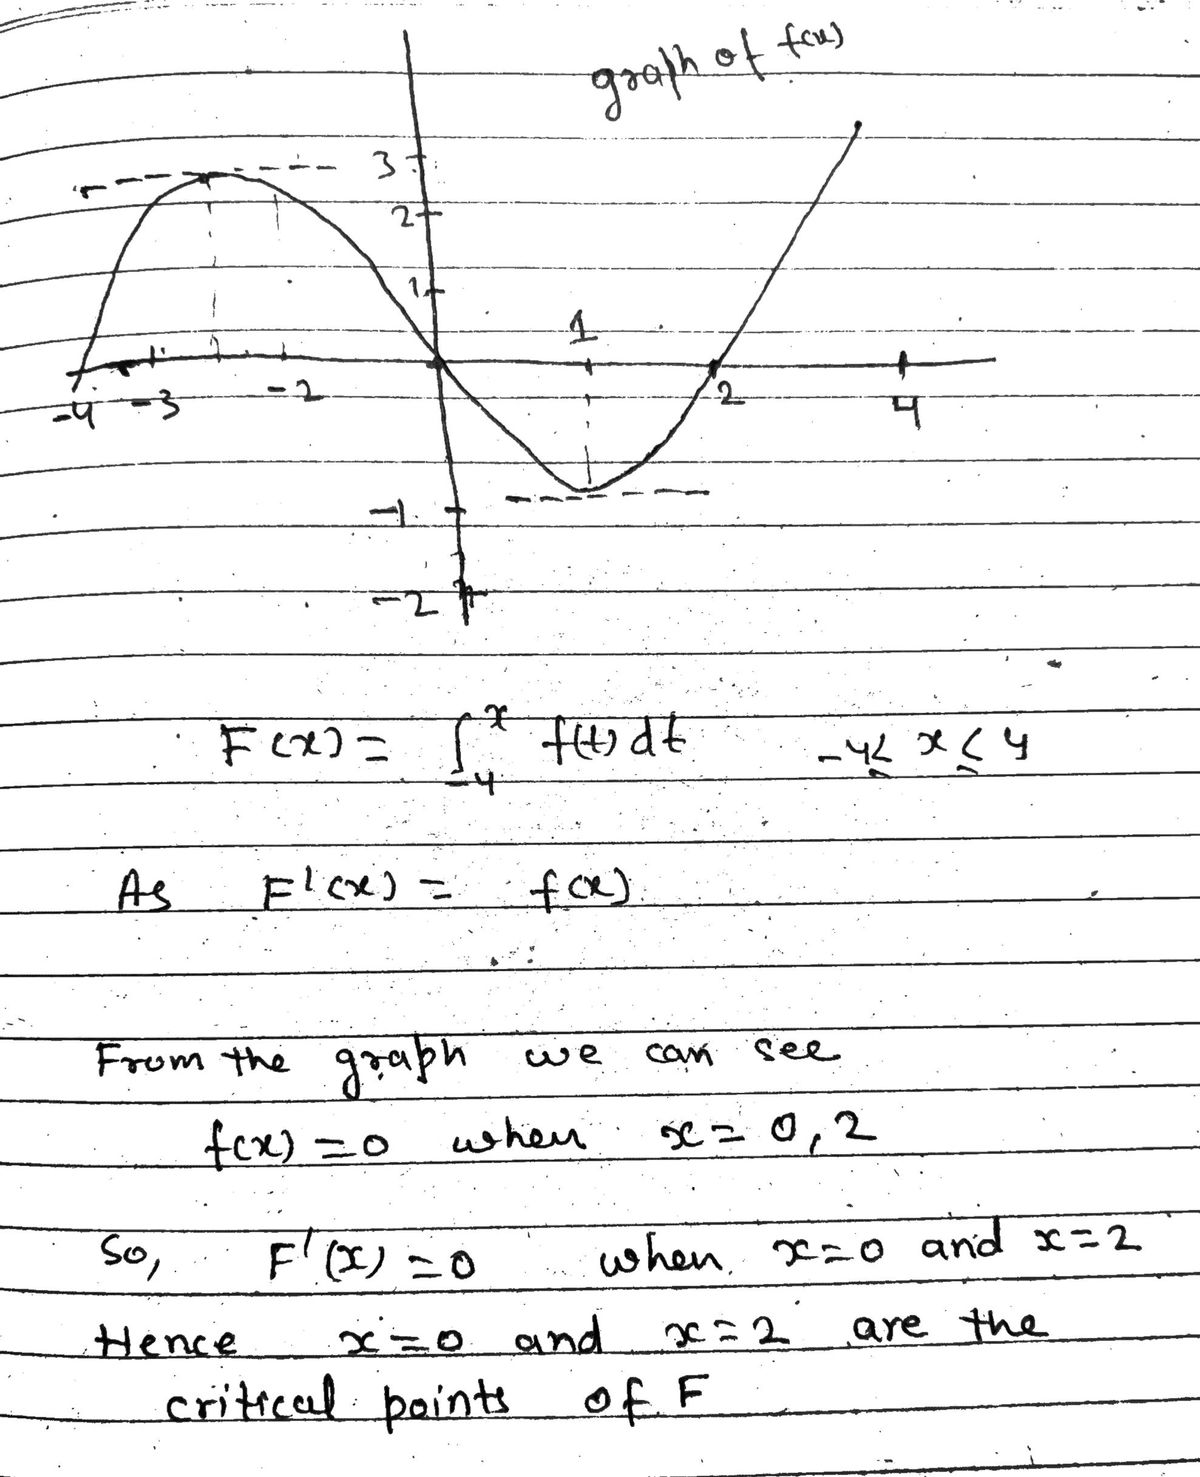 graph of f(x)
3
2
1
1
-4 -3 -2 2 4
-1
-2
F(x) = ∫_{-4}^{x} f(t) dt -4 ≤ x ≤ 4
As F'(x) = f(x)
From the graph we can see
f(x) = 0 when x = 0, 2
So, F'(x) = 0 when x = 0 and x = 2
Hence x = 0 and x = 2 are the
critical points of F